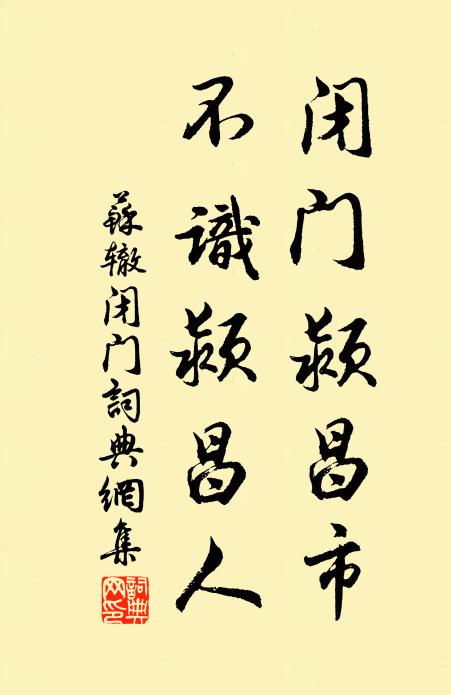 闭门颍昌市
不識颍昌人
蘇辙闭门詞典網集
詞典網印